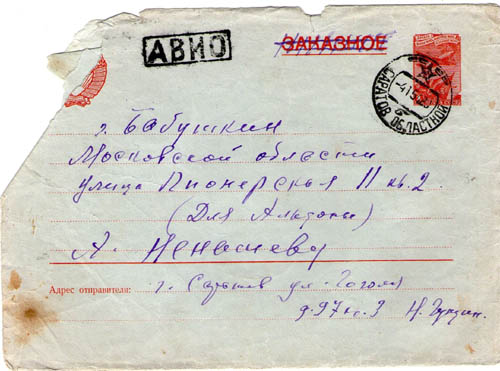 АВИО
ЗАКАЗНОЕ
САРАТОВ ОБЛАСТНОЙ
г. Бабушкин
Московской области
улица Пионерская 11 кв. 2
(Для Альтони)
А. Ненашеву
Адрес отправителя: г. Саратов ул. Гоголя
д. 97 кв. 3 Н.